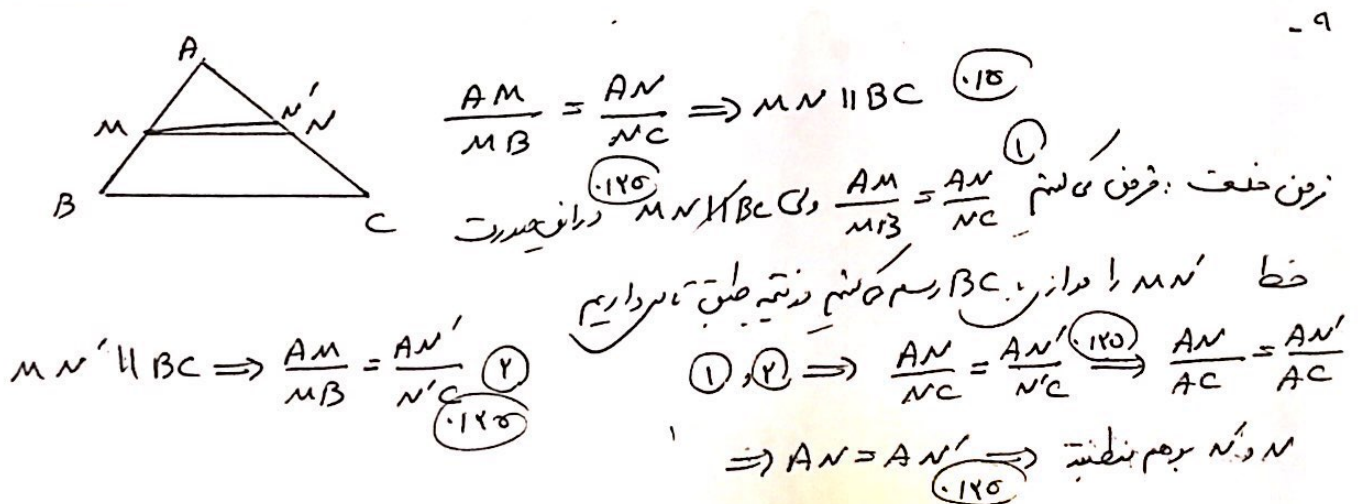 ۹ -
A
M N' N
B C
AM/MB = AN/NC ⟹ MN || BC ۰٫۲۵
فرض خلف : فرض می کنیم AM/MB = AN/NC ① ولی MN ∦ BC ۰٫۲۵ در این صورت
خط MN' را موازی BC رسم می کنیم در نتیجه طبق تالس داریم
MN' || BC ⟹ AM/MB = AN'/N'C ② ۰٫۲۵
①, ② ⟹ AN/NC = AN'/N'C ۰٫۲۵ ⟹ AN/AC = AN'/AC
⟹ AN = AN' ۰٫۲۵ ⟹ N و N' برهم منطبقند